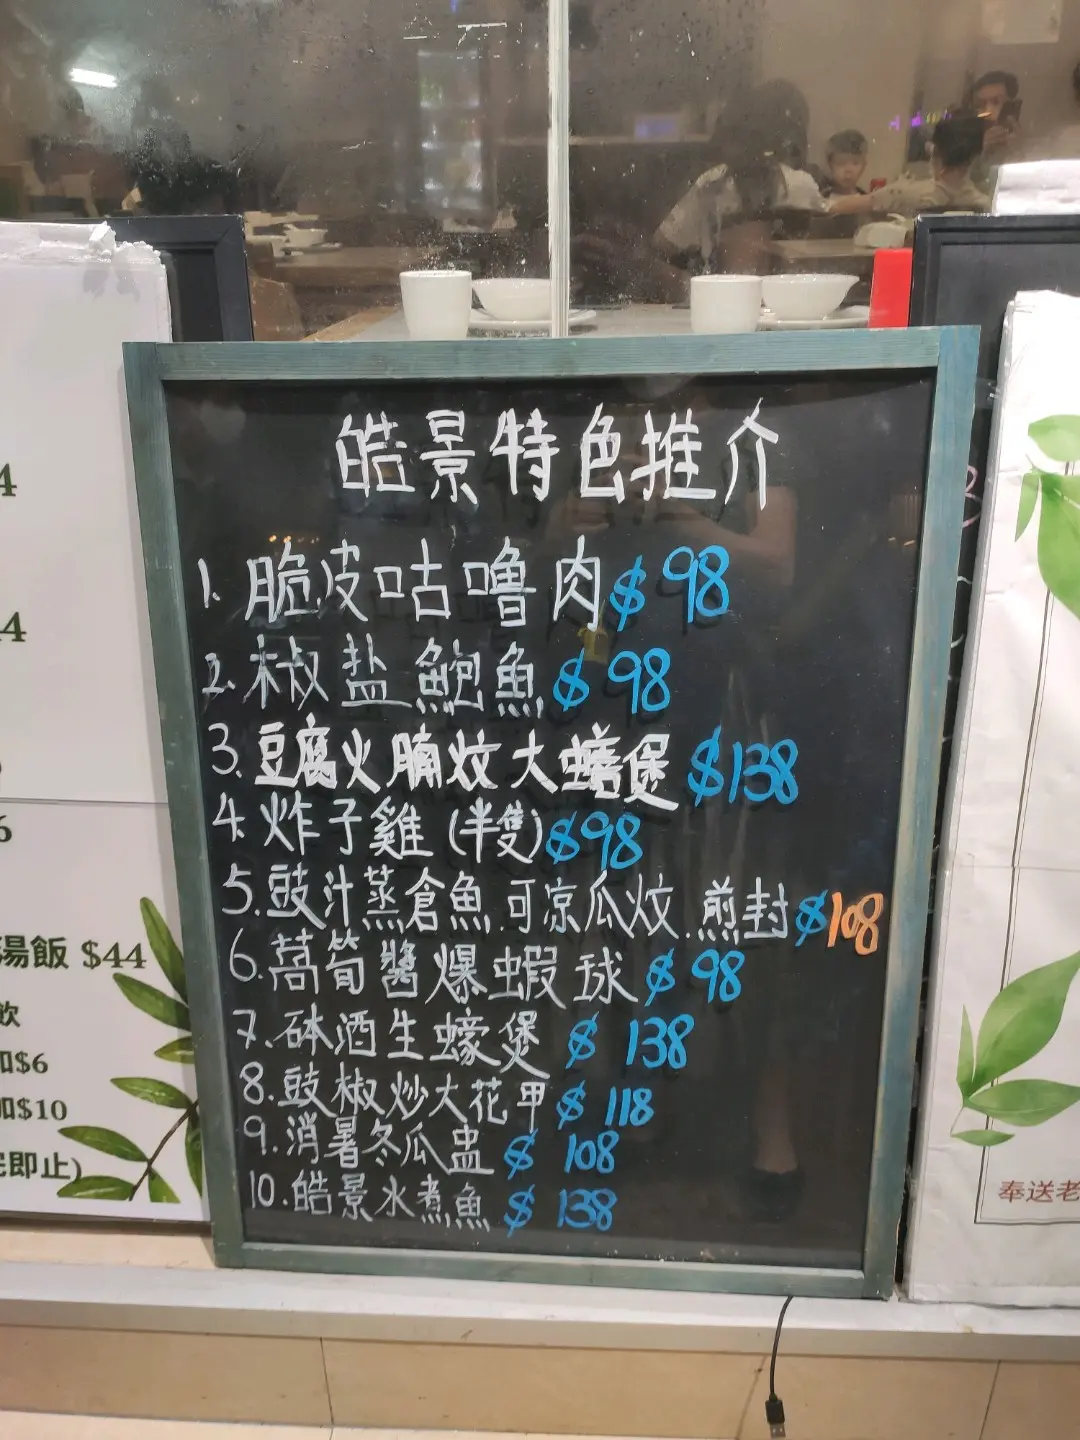 皓景特色推介
1. 脆皮咕嚕肉 $98
2. 椒盐鮑魚 $98
3. 豆腐火腩炆大蠔煲 $138
4. 炸子雞 (半隻) $98
5. 豉汁蒸倉魚.可凉瓜炆.煎封 $108
6. 萵筍醬爆蝦球 $98
7. 砵酒生蠔煲 $138
8. 豉椒炒大花甲 $118
9. 消暑冬瓜盅 $108
10. 皓景水煮魚 $138
4
44
6
湯飯 $44
飲
加$6
加$10
完即止)
奉送老